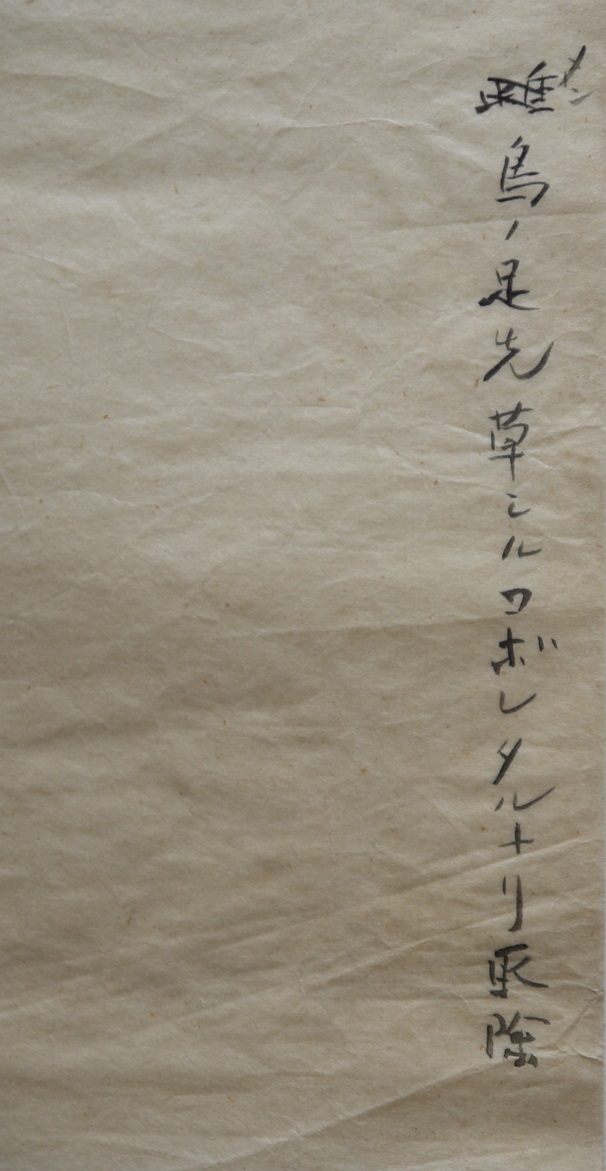 雌鳥ノ足先草シルコボレタルナリ取除
メン